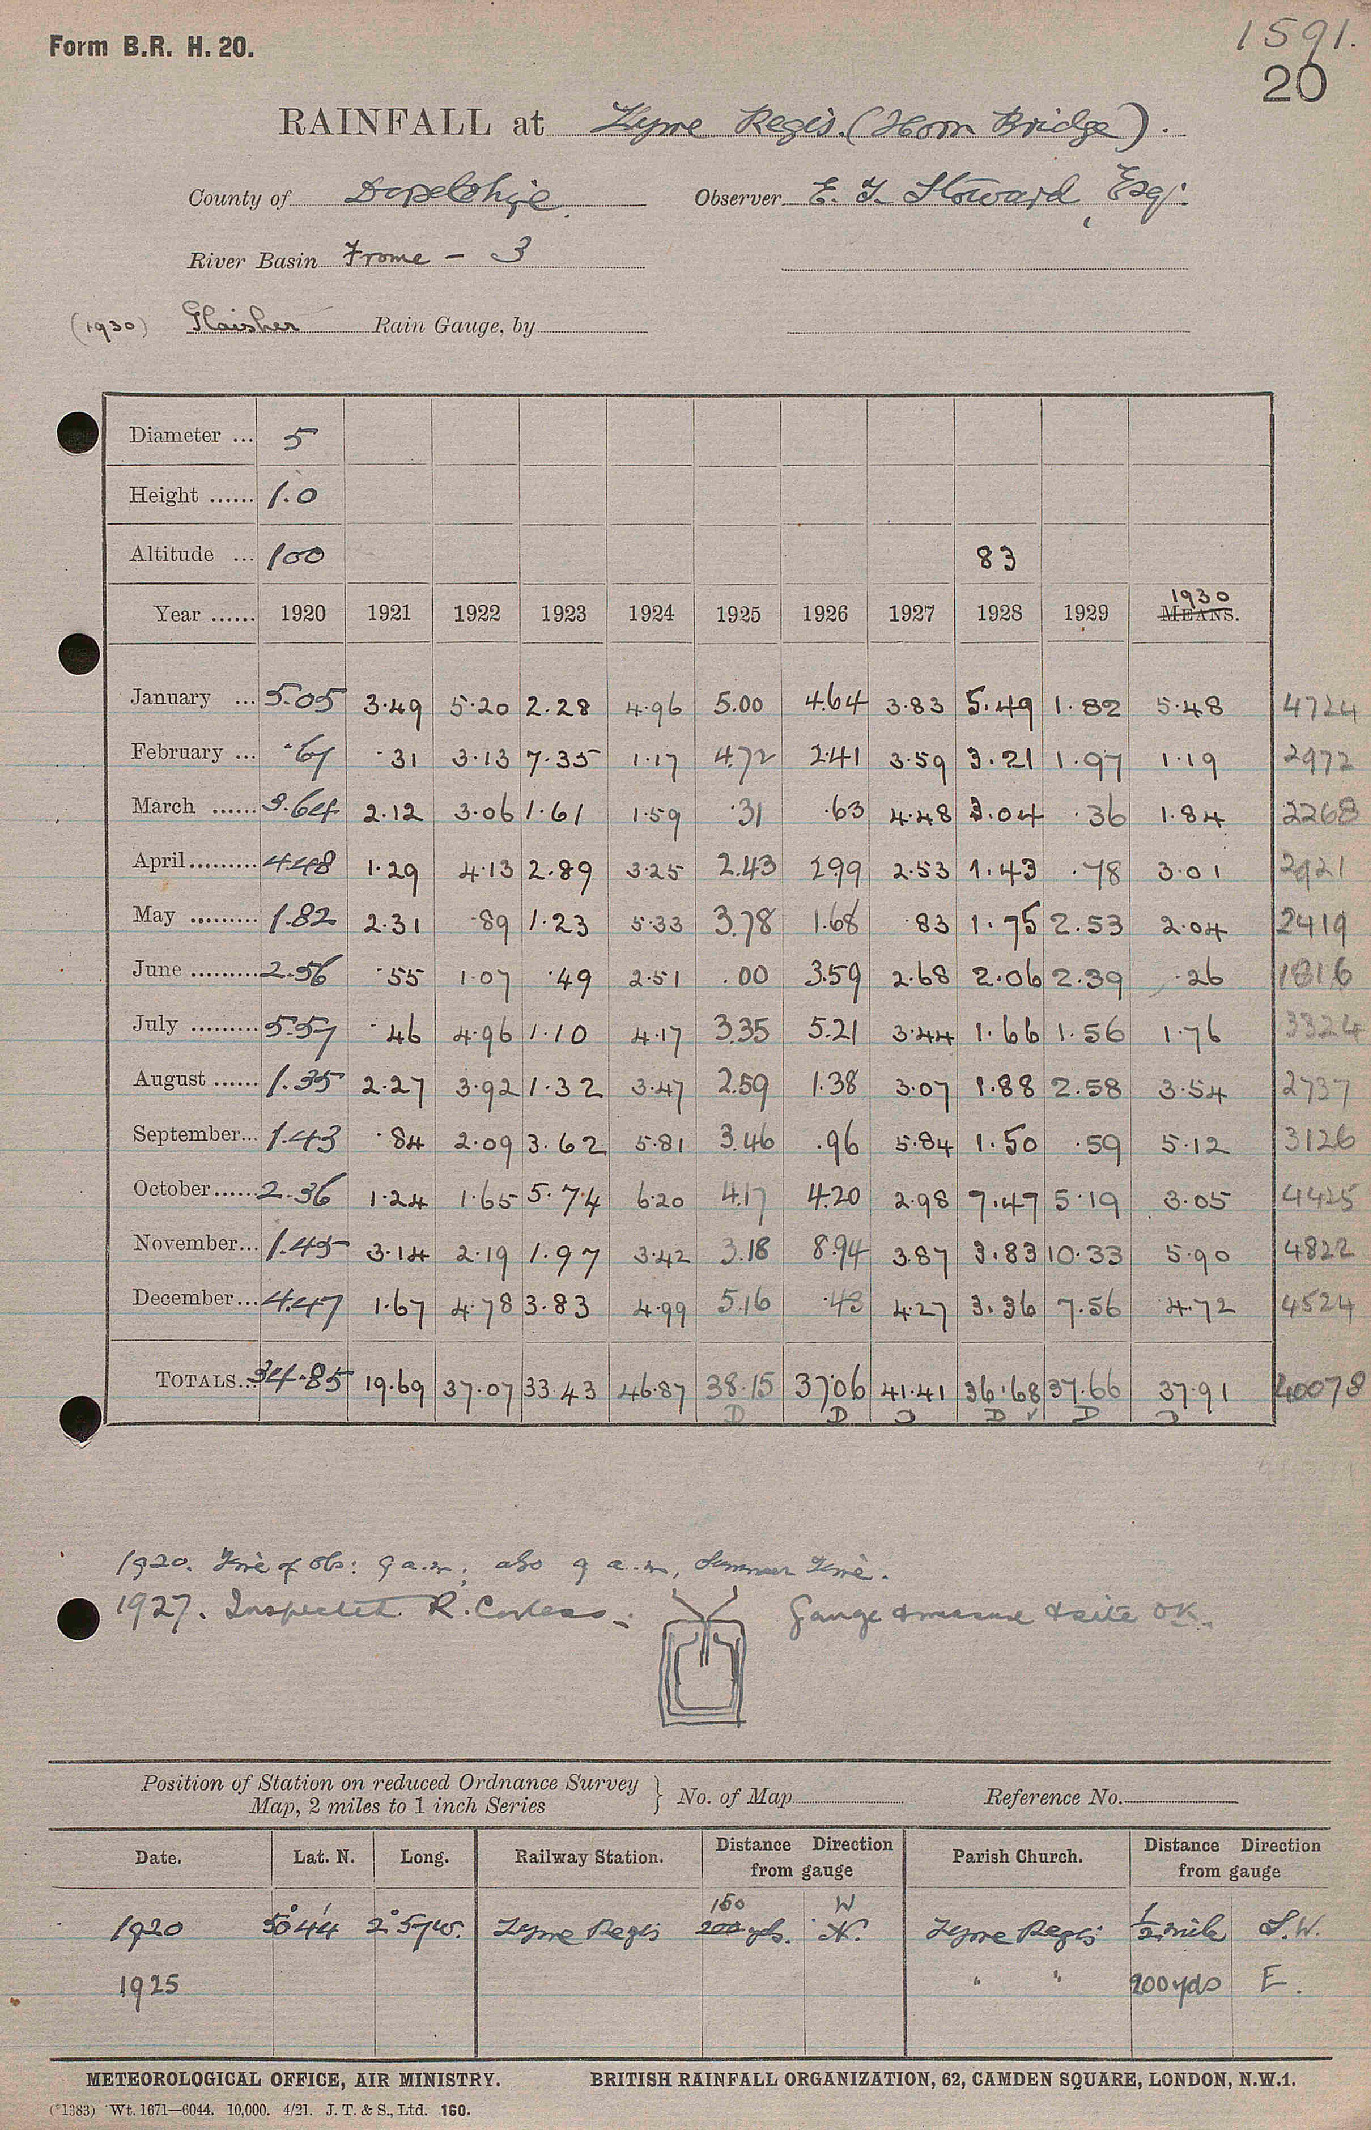 Form B.R. H. 20.
1591.
20
RAINFALL at Lyme Regis. (Horn Bridge).
County of Dorsetshire Observer E. T. Howard, Esq:
River Basin Frome - 3
(1930) Glaisher Rain Gauge, by
Diameter ... 5
Height ...... 1.0
Altitude ... 100 83
Year ...... 1920 1921 1922 1923 1924 1925 1926 1927 1928 1929 1930 MEANS.
January ... 5.05 3.49 5.20 2.28 4.96 5.00 4.64 3.83 5.49 1.82 5.48 4724
February ... .67 .31 3.13 7.35 1.17 4.72 2.41 3.59 3.21 1.97 1.19 2972
March ...... 3.64 2.12 3.06 1.61 1.59 .31 .63 4.48 3.04 .36 1.84 2268
April......... 4.48 1.29 4.13 2.89 3.25 2.43 2.99 2.53 1.43 .78 3.01 2921
May ......... 1.82 2.31 .89 1.23 5.33 3.78 1.68 .83 1.75 2.53 2.04 2419
June ......... 2.56 .55 1.07 .49 2.51 .00 3.59 2.68 2.06 2.39 .26 1816
July ......... 5.57 .46 4.96 1.10 4.17 3.35 5.21 3.44 1.66 1.56 1.76 3324
August ...... 1.35 2.27 3.92 1.32 3.47 2.59 1.38 3.07 1.88 2.58 3.54 2737
September... 1.43 .84 2.09 3.62 5.81 3.46 .96 5.84 1.50 .59 5.12 3126
October...... 2.36 1.24 1.65 5.74 6.20 4.17 4.20 2.98 7.47 5.19 3.05 4425
November... 1.45 3.14 2.19 1.97 3.42 3.18 8.94 3.87 3.83 10.33 5.90 4822
December... 4.47 1.67 4.78 3.83 4.99 5.16 .43 4.27 3.36 7.56 4.72 4524
TOTALS... 34.85 19.69 37.07 33.43 46.87 38.15 37.06 41.41 36.68 37.66 37.91 40078
D D D D D D
1920. Time of Obs: 9 a.m; also 9 a.m, Summer Time.
1927. Inspected R. Corless - Gauge & measure & site OK.
Position of Station on reduced Ordnance Survey Map, 2 miles to 1 inch Series } No. of Map Reference No.
Date. Lat. N. Long. Railway Station. Distance Direction from gauge Parish Church. Distance Direction from gauge
150 W
1920 50° 44' 2° 57 W. Lyme Regis 200 yds. N. Lyme Regis ½ mile S.W.
1925 " " 200 yds E.
METEOROLOGICAL OFFICE, AIR MINISTRY. BRITISH RAINFALL ORGANIZATION, 62, CAMDEN SQUARE, LONDON, N.W.1.
(*1383) Wt. 1671—6044. 10,000. 4/21. J. T. & S., Ltd. 160.